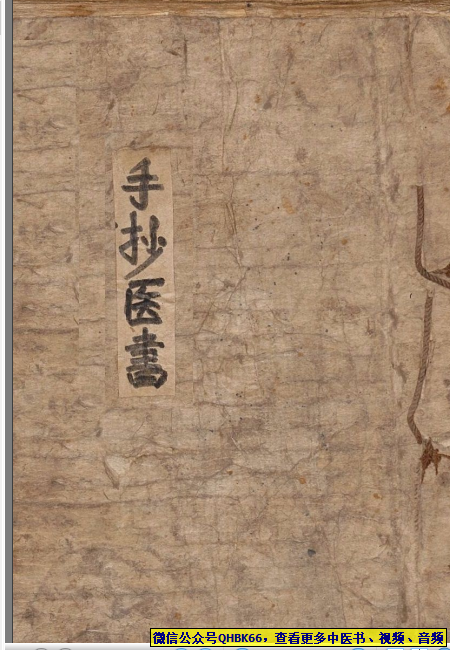 手抄医書
微信公众号QHBK66，查看更多中医书、视频、音频